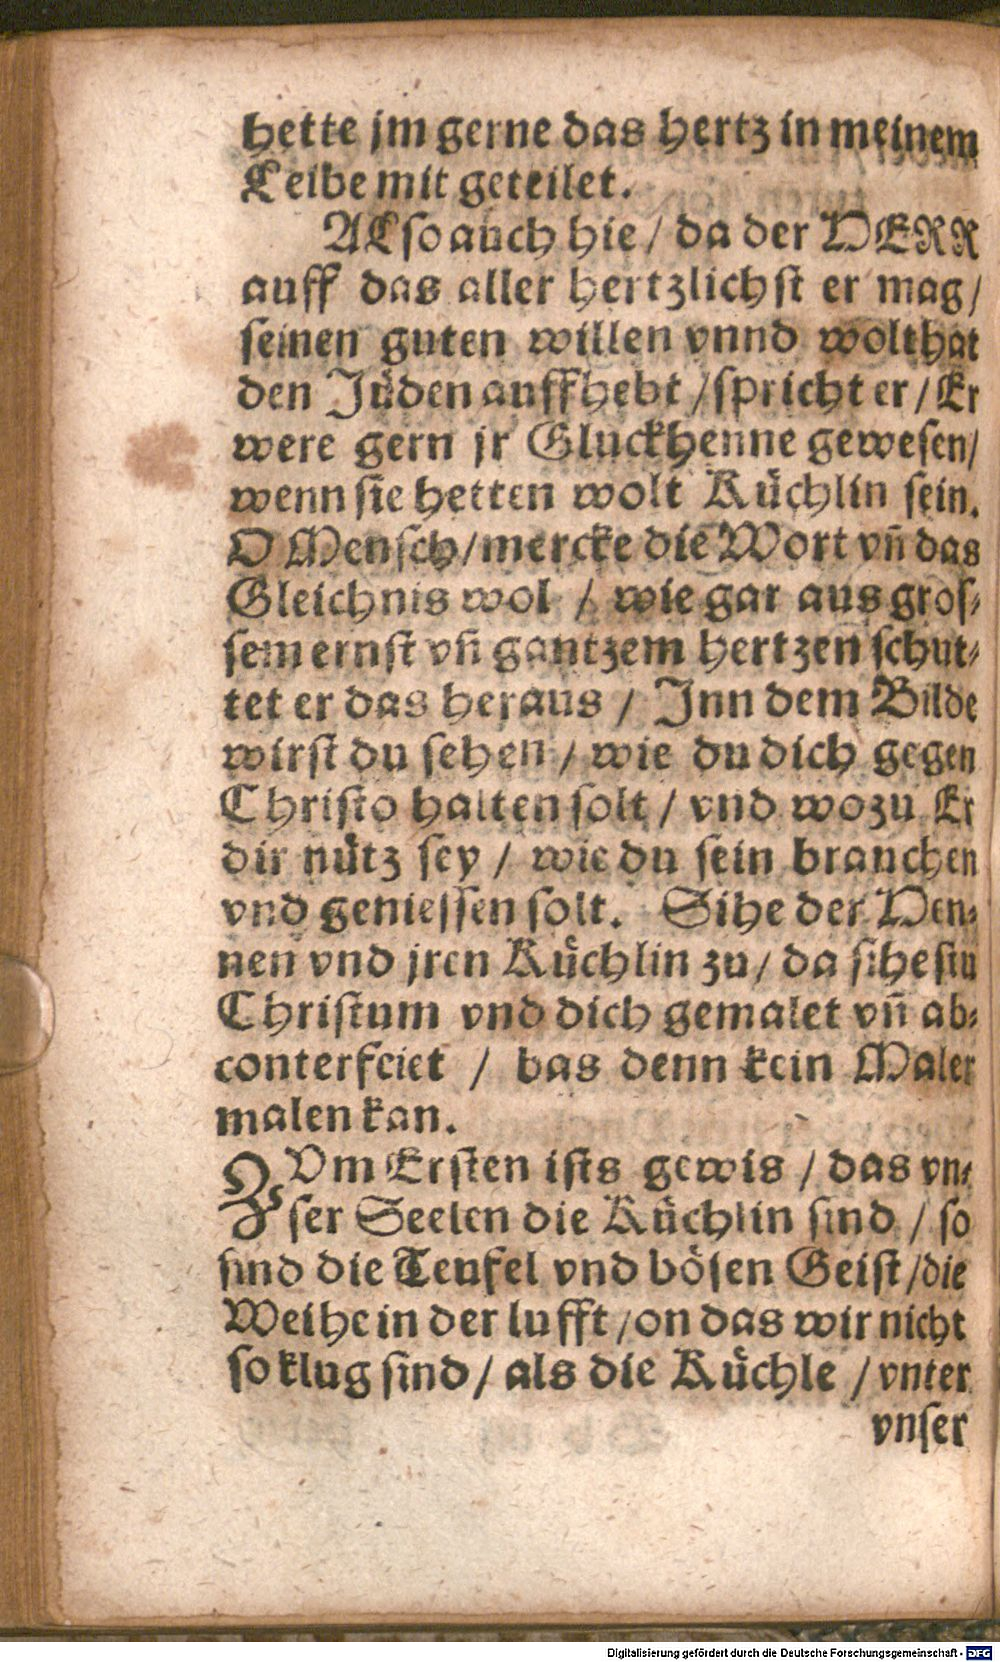 hette jm gerne das hertz in meinem
Leibe mit geteilet.
ALso auch hie / da der HERR
auff das aller hertzlichst er mag /
seinen guten willen vnnd wolthat
den Jüden auffhebt / spricht er / Er
were gern jr Gluckhenne gewesen /
wenn sie hetten wolt Küchlin sein.
O Mensch / mercke die Wort vn̄ das
Gleichnis wol / wie gar aus gros⸗
sem ernst vn̄ gantzem hertzen schut⸗
tet er das heraus / Jnn dem Bilde
wirst du sehen / wie du dich gegen
Christo halten solt / vnd wozu Er
dir nütz sey / wie du sein brauchen
vnd geniessen solt. Sihe der Hen⸗
nen vnd jren Küchlin zu / da sihestu
Christum vnd dich gemalet vn̄ ab⸗
conterfeiet / bas denn kein Maler
malen kan.
ZVm Ersten ists gewis / das vn⸗
ser Seelen die Küchlin sind / so
sind die Teufel vnd bösen Geist / die
Weihe in der lufft / on das wir nicht
so klug sind / als die Küchle / vnter
vnser
Digitalisierung gefördert durch die Deutsche Forschungsgemeinschaft - DFG